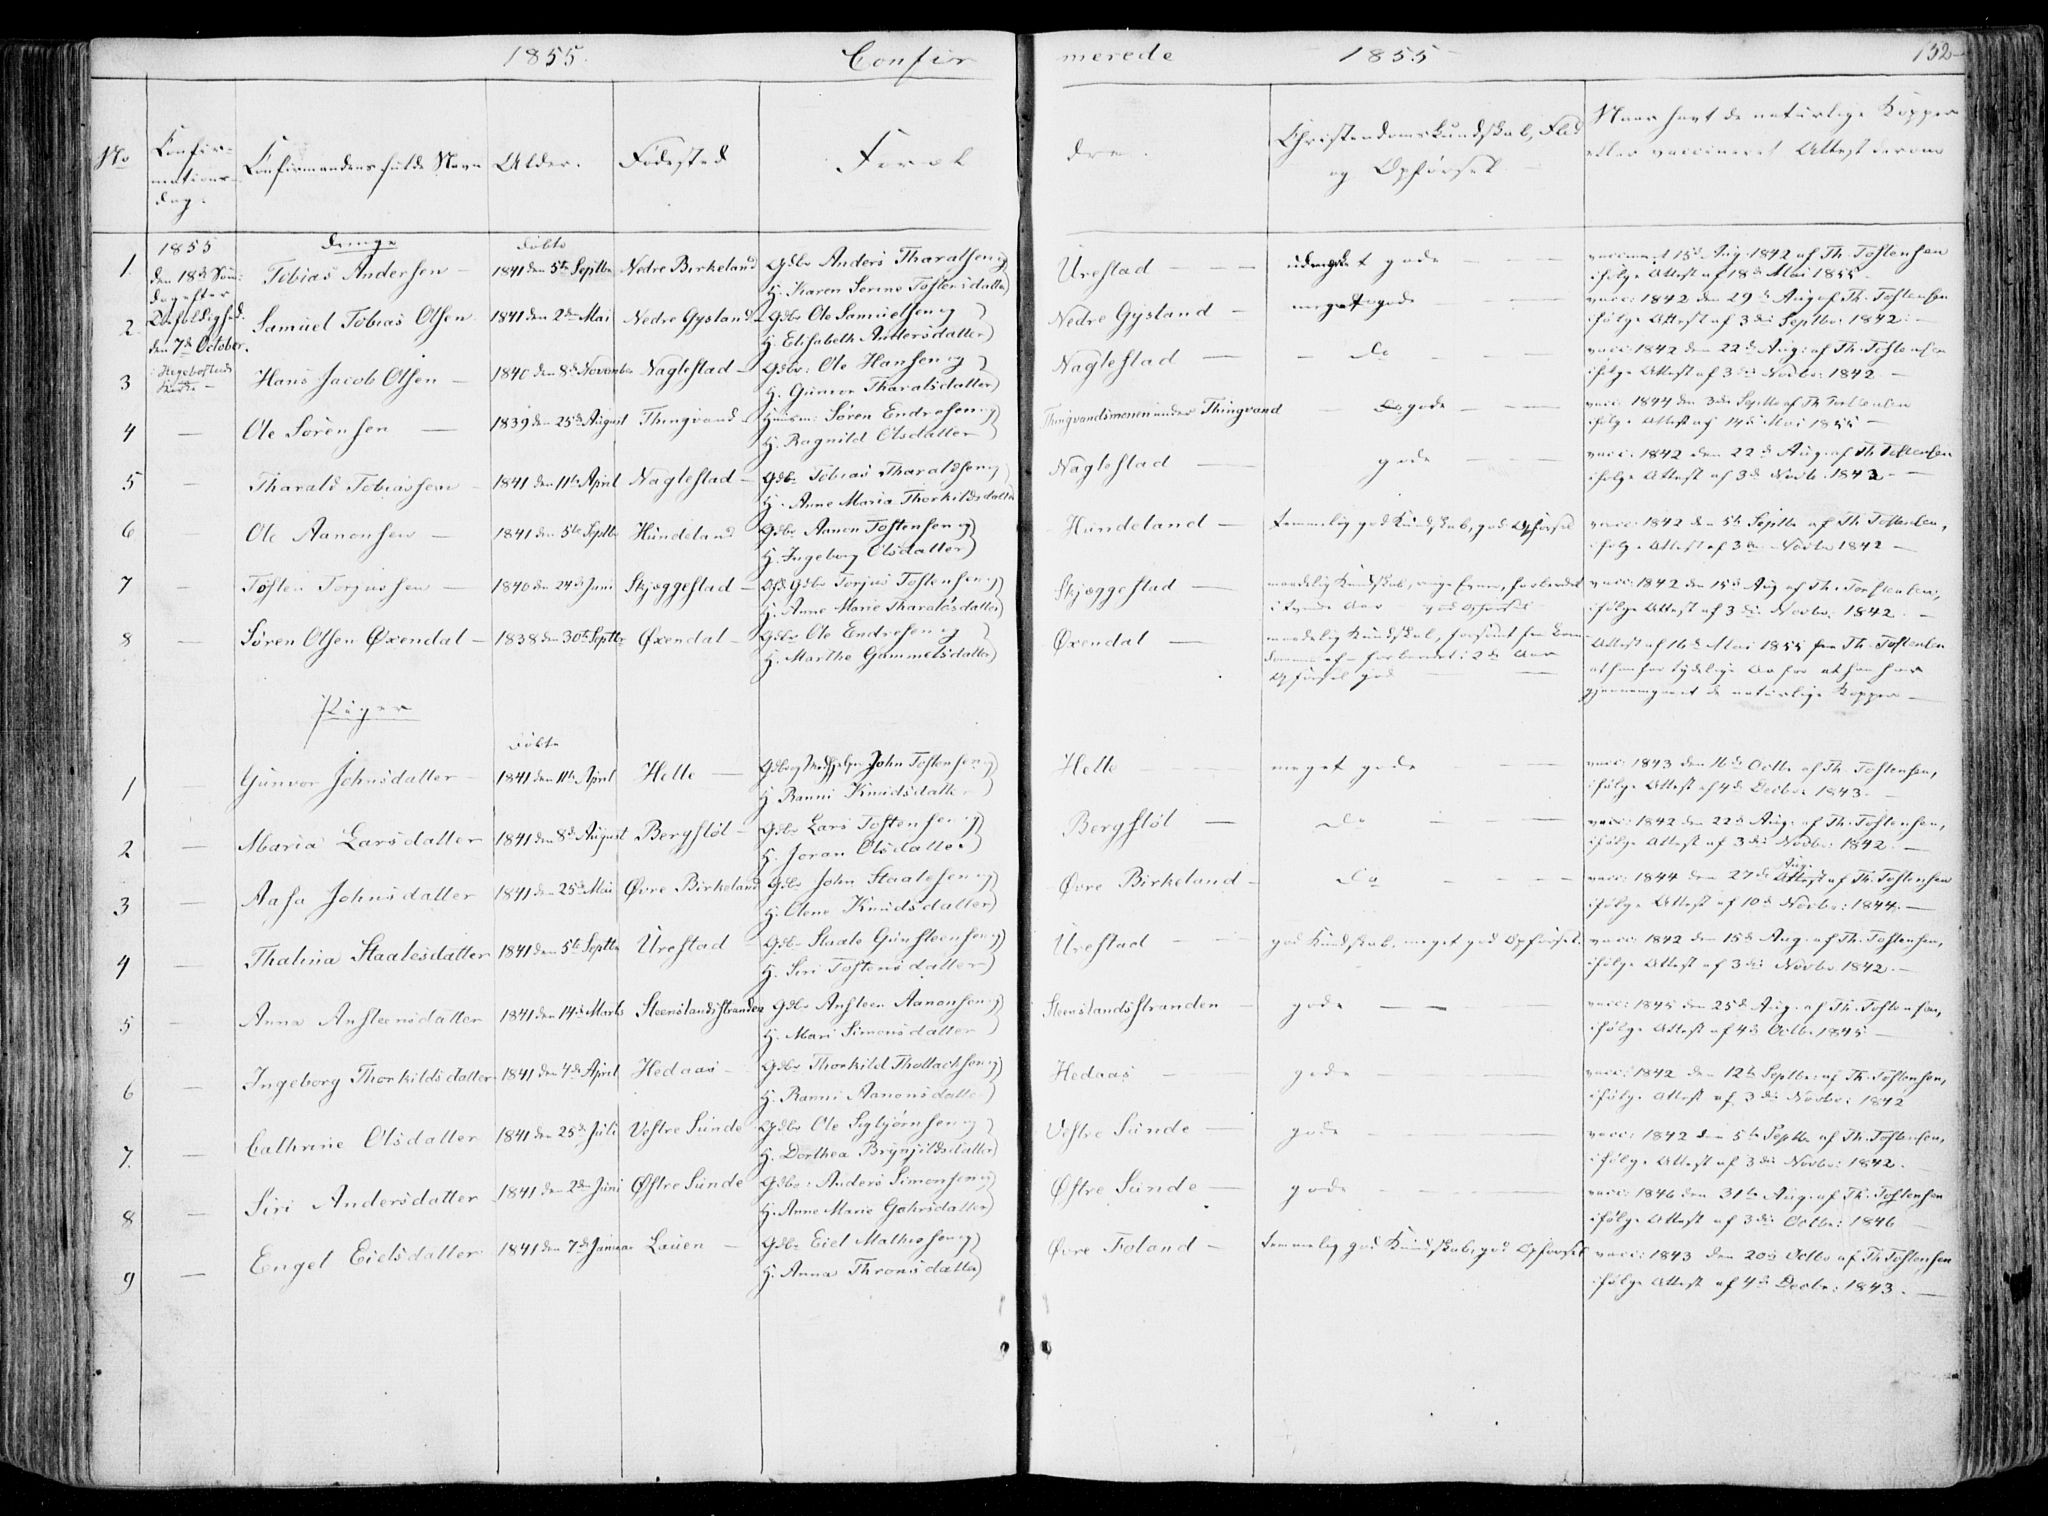 1855. Confir merede 1855 132
No Confir- Confirmandens fulde Navn Alder. Fødested Foræl dre. Christendomskundskab, Flid Naar havt de naturlige Kopper
mations- og Opførsel. eller vaccineret Attest derom
dag.
1855 Drenge Døbte
1. den 18de Søn- Tobias Andersen 1841 den 5te Septbr Nedre Birkeland Gdbr Anders Tharalsen og Urestad udmærket gode vaccineret 15de Aug. 1842 af Th. Tostensen
dag efter H. Karen Serine Tostensdatter ifølge Attest af 18de Mai 1855.
2 Trefoldighed. Samuel Tobias Olsen 1841 den 2den Mai Nedre Gysland Gdbr Ole Samuelsen og Nedre Gysland meget gode vacc: 1842 den 29de Aug. af Th. Tostensen
den 7de October. H. Elisabeth Andersdatter ifølge Attest af 3die Septbr. 1842.
3 i Hægebostads Kirke Hans Jacob Olsen 1840 den 8de November Naglestad Gdbr: Ole Hansen og Naglestad Do vacc: 1842 den 22de Aug: af Th. Tostensen
H. Gunvor Tharalsdatter ifølge Attest af 3die Novbr: 1842
4 Ole Sørensen 1839 den 25de August Thingvand Huusm: Søren Endresen og Thingvandsmonen under Thingvand gode vacc: 1844 den 3die Septbr af Th. Tostensen
H. Ragnild Olsdatter ifølge Attest af 14de Mai 1855
5 Tharald Tobiassen 1841 den 11te April Naglestad Gdbr Tobias Tharaldsen og Naglestad gode vacc: 1842 den 22de Aug. af Th Tostensen
H. Anne Maria Thorkildsdatter ifølge Attest af 3die Novbr. 1842.
6 Ole Aanonsen 1841 den 5te Septbr Hundeland Gdbr Aanon Tostensen og Hundeland temmelig god Kundskab, god Opførsel vacc: 1842 den 5te Septbr af Th. Tostensen,
H. Ingeborg Olsdatter ifølge Attest af 3die Novbr 1842
7 Tosten Torjussen 1840 den 24de Juni Skjæggestad Gdbr Torjus Tostensen og Skjæggestad maadelig Kundskab, ringe Evner, forberedet vacc: 1842 den 15de Aug af Th. Tostensen,
H. Anne Marie Tharalsdatter i tvende Aar god Opførsel ifølge Attest af 3die Novbr. 1842.
8 Søren Olsen Øxendal 1838 den 30te Septbr Øxendal Gdbr Ole Endresen og Øxendal maadelig Kundskab, forsømt fra Barn- Attest af 16de Mai 1855 fra Th. Tostensen
H. Marthe Gammelsdatter dommen af forberedet i 2de Aar at han har tydelige Ar for at han har
Opførsel god gjennemgaaet de naturlige Kopper
Piger
Døbte
1 Gunvor Johnsdatter 1841 den 11te April Helle Gdbr og Medhjelper John Tostensen og Helle meget gode vacc: 1843 den 16de Octbr af Th. Tostensen,
H. Ranni Knudsdatter ifølge Attest af 4de Decbr. 1843.
2 Maria Larsdatter 1841 den 8de August Bergstøl Gdbr Lars Tostensen og Bergstøl Do vacc: 1842 den 22de Aug. af Th. Tostensen,
H. Joran Olsdatter ifølge Attest af 3die Novbr: 1842.
3 Aasa Johnsdatter 1841 den 25de Mai Øvre Birkeland Gdbr John Staalesen og Øvre Birkeland Do vacc: 1844 den 27de Aug. af Th. Tostensen
H. Olene Knudsdatter ifølge Attest af 10de Novbr: 1844.
4 Thalina Staalesdatter 1841 den 5te Septbr Urestad Gdbr Staale Gunsteensen og Urestad god Kundskab, meget god Opførsel. vacc: 1842 den 15de Aug. af Th. Tostensen,
H. Siri Tostensdatter ifølge Attest af 3die Novbr. 1842.
5 Anna Ansteensdatter 1841 den 14de Marts Steenslandsstranden Gdbr Ansteen Aanonsen og Steenslandsstranden gode vacc: 1845 den 25de Aug. af Th. Tostensen,
H. Mari Simonsdatter ifølge Attest af 4de Octbr. 1845
6 Ingeborg Thorkildsdatter 1841 den 4de April Hedaas Gdbr Thorkild Thollacksen og Hedaas gode vacc: 1842 den 12te Septbr: af Th. Tostensen,
H. Ranni Aanonsdatter ifølge Attest af 3die Novbr: 1842
7. Cathrine Olsdatter 1841 den 25de Juli Vestre Sunde Gdbr Ole Sigbjørnsen og Vestre Sunde gode vacc: 1842 den 5te Septbr af Th. Tostensen,
H. Dorthea Brynjildsdatter ifølge Attest af 3die Novbr: 1842.
8 Siri Andersdatter 1841 den 2den Juni Østre Sunde Gdbr: Anders Simonsen og Østre Sunde gode vacc: 1846 den 31te Aug. af Th. Tostensen
H. Anne Marie Gahrsdatter ifølge Attest af 3die Octbr: 1846
9 Engel Eielsdatter 1841 den 7de Januar Lauen Gdbr Eiel Mathiasen og Øvre Foland temmelig god Kundskab, god Opførsel vacc: 1843 den 20de Octbr af Th Tostensen
H. Anna Thronsdatter ifølge Attest af 4de Decbr: 1843.